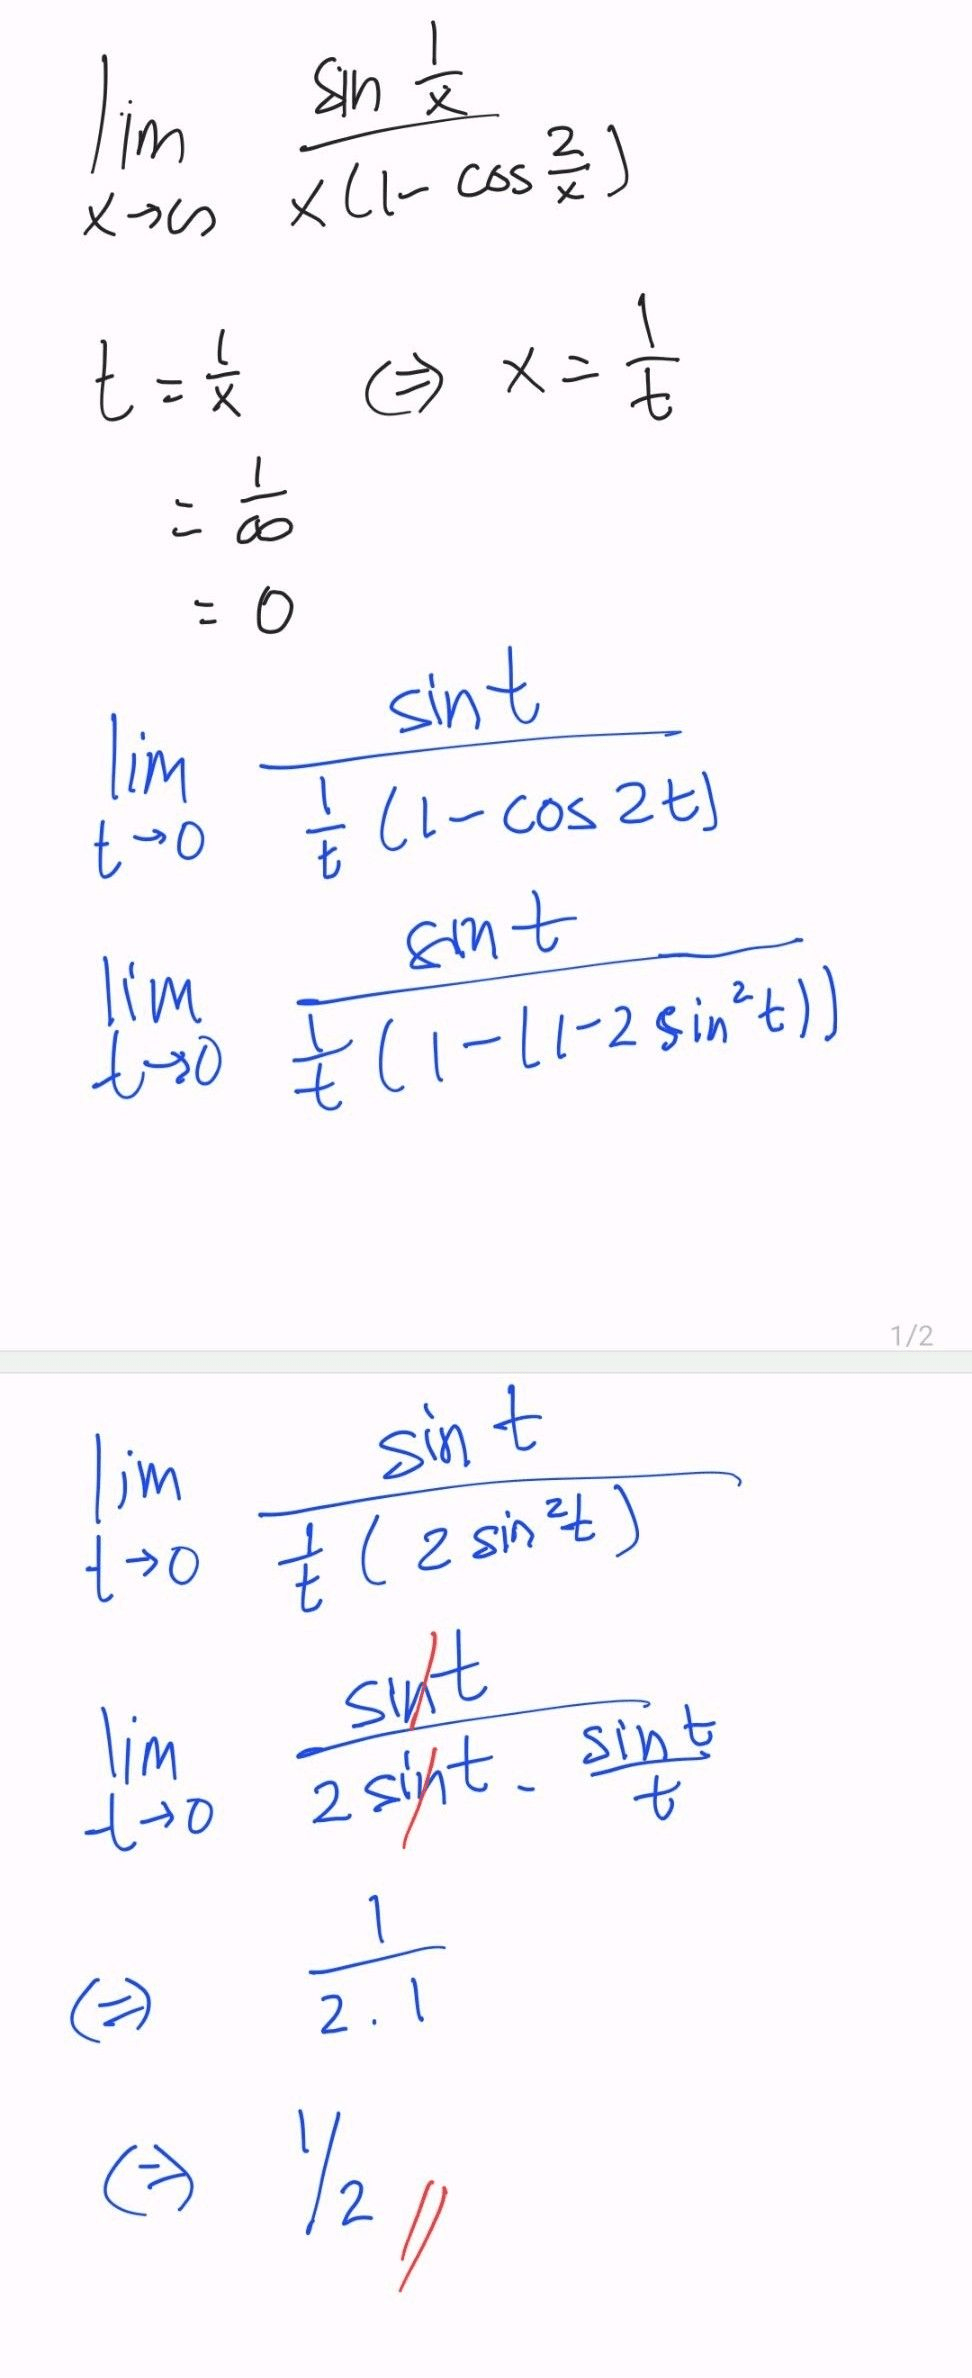 lim x→∞ sin 1/x / x(1- cos 2/x)
t = 1/x (=) x = 1/t
= 1/∞
= 0
lim t→0 sin t / 1/t (1- cos 2t)
lim t→0 sin t / 1/t (1-(1-2 sin²t))
1/2
lim t→0 sin t / 1/t (2 sin²t)
lim t→0 sin t / 2 sin t . sin t / t
(=) 1 / 2 . 1
(=) 1/2 //